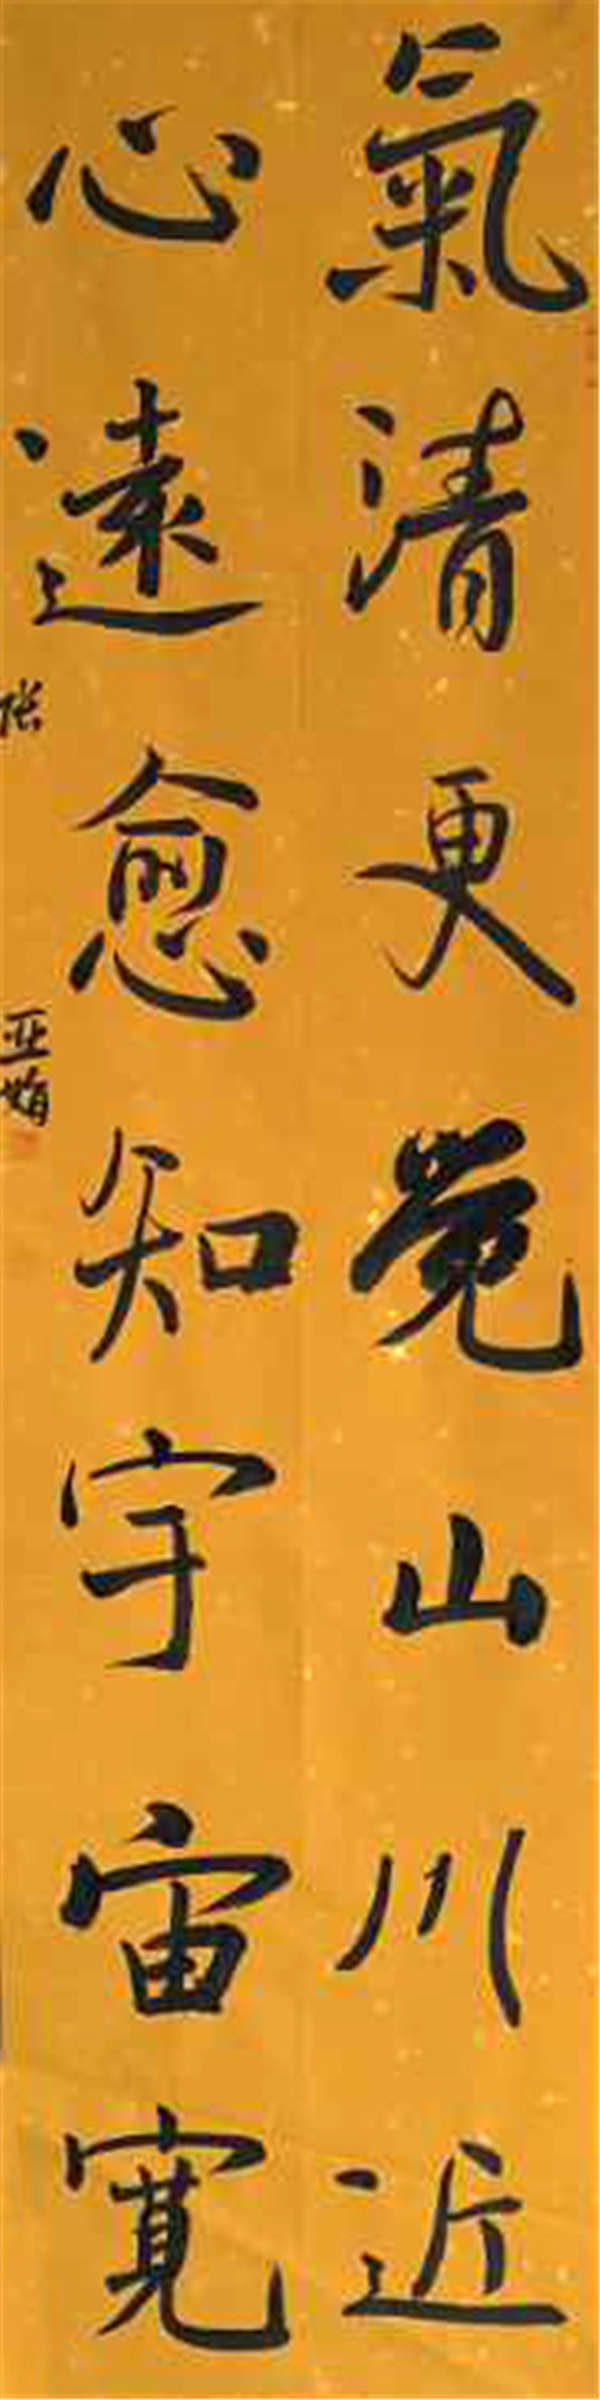 氣清更覺山川近
心遠愈知宇宙寬
张亚娟